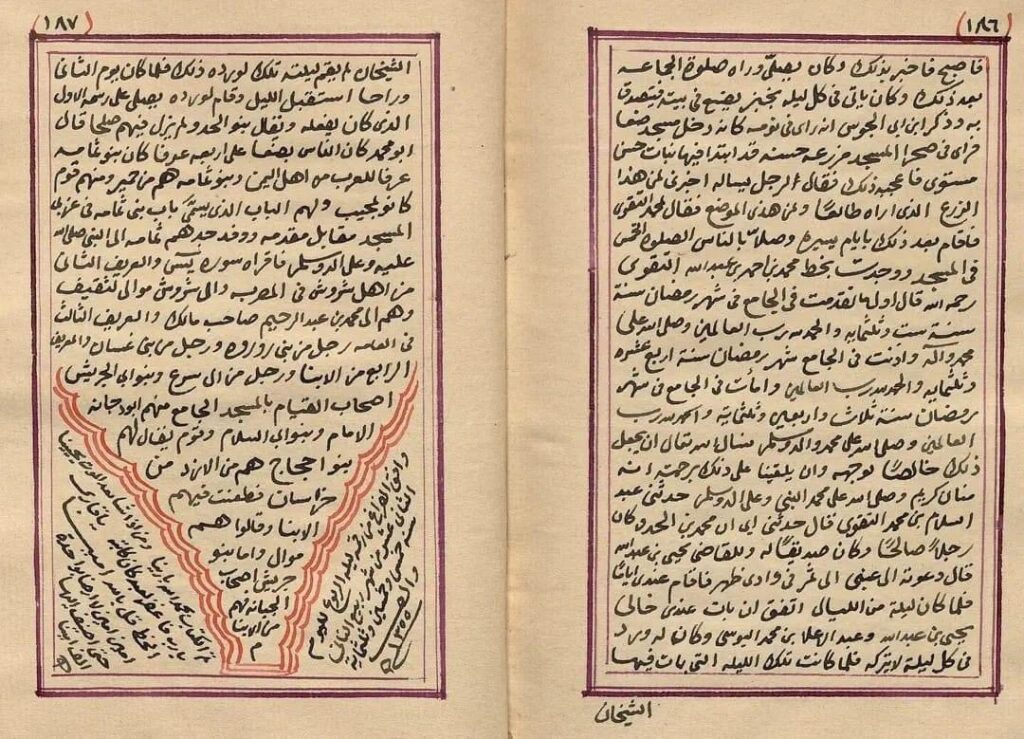 (١٨٦)
فاصبح فاخبر بذلك وكان يصلي وراه صلوة الجماعه
بعد ذلك وكان ياتي في كل ليله بخبز يضع في بيته فيتصدق
به وذكر ابن ابي الجوسي انه راى في نومه كانه دخل مسجد صنعا
فراى في صحرا المسجد مزرعه حسنه قد ابتدا فيها نبات حسن
مستوي فاعجبه ذلك فقال الرجل يساله اخبرني لمن هذا
الزرع الذي اراه طالعًا ولمن هذي الموضع فقال لمحمد النقوي
فاقام بعد ذلك بايام يسيره وصلا بالناس الصلوة الخمس
في المسجد ووجدت بخط محمد بن احمد بن عبد الله النقوي
رحمه الله قال اول ما تقدمت في الجامع في شهر رمضان سنة
سنة ست وثلثمايه والحمد لله رب العالمين وصلى الله على
محمد وآله واذنت في الجامع شهر رمضان سنة اربع عشره
وثلثمايه والحمد لله رب العالمين وامأت في الجامع في شهر
رمضان سنة ثلاث واربعين وثلثمايه والحمد لله رب
العالمين وصلى الله على محمد واله وسلم نسال الله تعالى ان يجعل
ذلك خالصًا لوجهه وان يلقينا على ذلك برحمته انه
منان كريم وصلى الله على محمد النبي وعلى اله وسلم حدثني عبد
السلام بن محمد النقوي قال حدثني ابي ان محمد بن الحدد كان
رجلاً صالحًا وكان صديقًا له وللقاضي يحيى بن عبد الله
قال دعوته الى عنبي الى ثمر في وادي ظهر فاقام عندي ايامًا
فلما كان ليلة من الليالي اتفق ان بات عندي خالي
يحيى بن عبد الله وعبد الاعلا بن محمد البوسي وكان له ورد
في كل ليلة لا يتركه فلما كانت تلك الليله التي بات فيها
الشيخان
(١٨٧)
الشيخان لم يقم ليلته تلك لورده ذلك فلما كان يوم الثاني
وراحا استقبل الليل وقام لورده يصلي على رسمه الاول
الذي كان يفعله ونقل بنو الحدد ولم يزل فيهم صلحا قال
ابو محمد كان الناس بصنعا على اربعه عرفا كان بنو ثمامه
عرفا للعرب من اهل اليمن وبنو ثمامه هم من حمير ومنهم قوم
كانو لمجيب ولهم الباب الذي يسمى باب بني ثمامه في عربي
المسجد مقابل مقدمه ووفد جدهم ثمامه الى النبي صلى الله
عليه وعلى اله وسلم فاقراه سوره يس والعريف الثاني
من اهل شروش في المصرب وال شروش موالي لثقيف
وهم الى محمد بن عبد الرحيم صاحب مالك والعريف الثالث
في العامه رجل من بني زوروه ورجل من بني غسان والعريف
الرابع من الابنا ورجل من ال سرع وبنو ابي الجريش
اصحاب القيام بالمسجد الجامع منهم ابو دجانه
الامام وبنو ابي السلام وقوم يقال لهم
بنو احجاج هم من الازد من
خراسان فطعنت فيهم
الابنا وقالوا هم
موال واما بنو
جريش اصحاب
الجبانه لهم
من الابنا
م
وافق الفراغ من رقمه ليله الربوع لليوم
الثاني عشر من شهر ربيع الثاني
سنة خمس وخمسين وثلثمايه
والف
١٣٥٥
تم الكتاب بحمد الله بارينا
يا رب فاغفر لعبد كان كاتبه